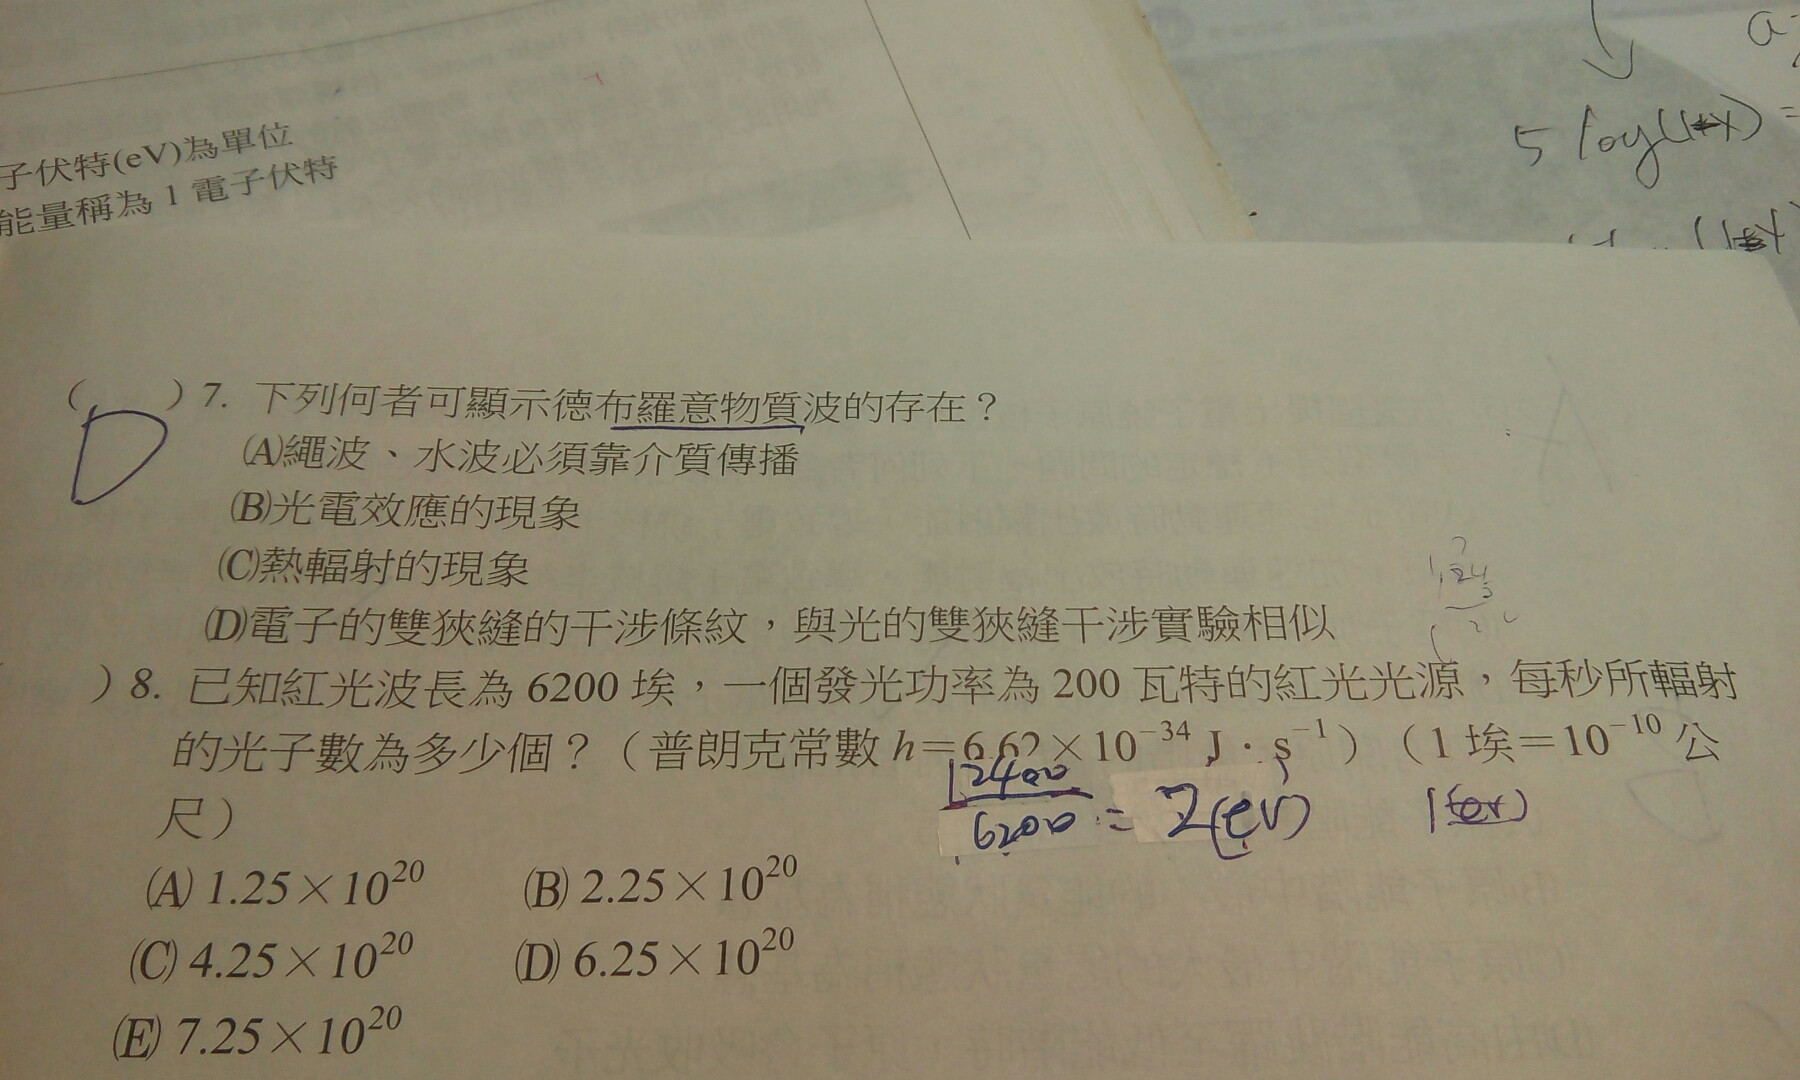 子伏特(eV)為單位
能量稱為 1 電子伏特
5 log(1+x) =
( D ) 7. 下列何者可顯示德布羅意物質波的存在？
(A)繩波、水波必須靠介質傳播
(B)光電效應的現象
(C)熱輻射的現象
(D)電子的雙狹縫的干涉條紋，與光的雙狹縫干涉實驗相似
) 8. 已知紅光波長為 6200 埃，一個發光功率為 200 瓦特的紅光光源，每秒所輻射
的光子數為多少個？（普朗克常數 h＝6.62×10⁻³⁴ J．s⁻¹）（1 埃＝10⁻¹⁰ 公
尺）
12400/6200 = 2(eV)
(A) 1.25×10²⁰ (B) 2.25×10²⁰
(C) 4.25×10²⁰ (D) 6.25×10²⁰
(E) 7.25×10²⁰